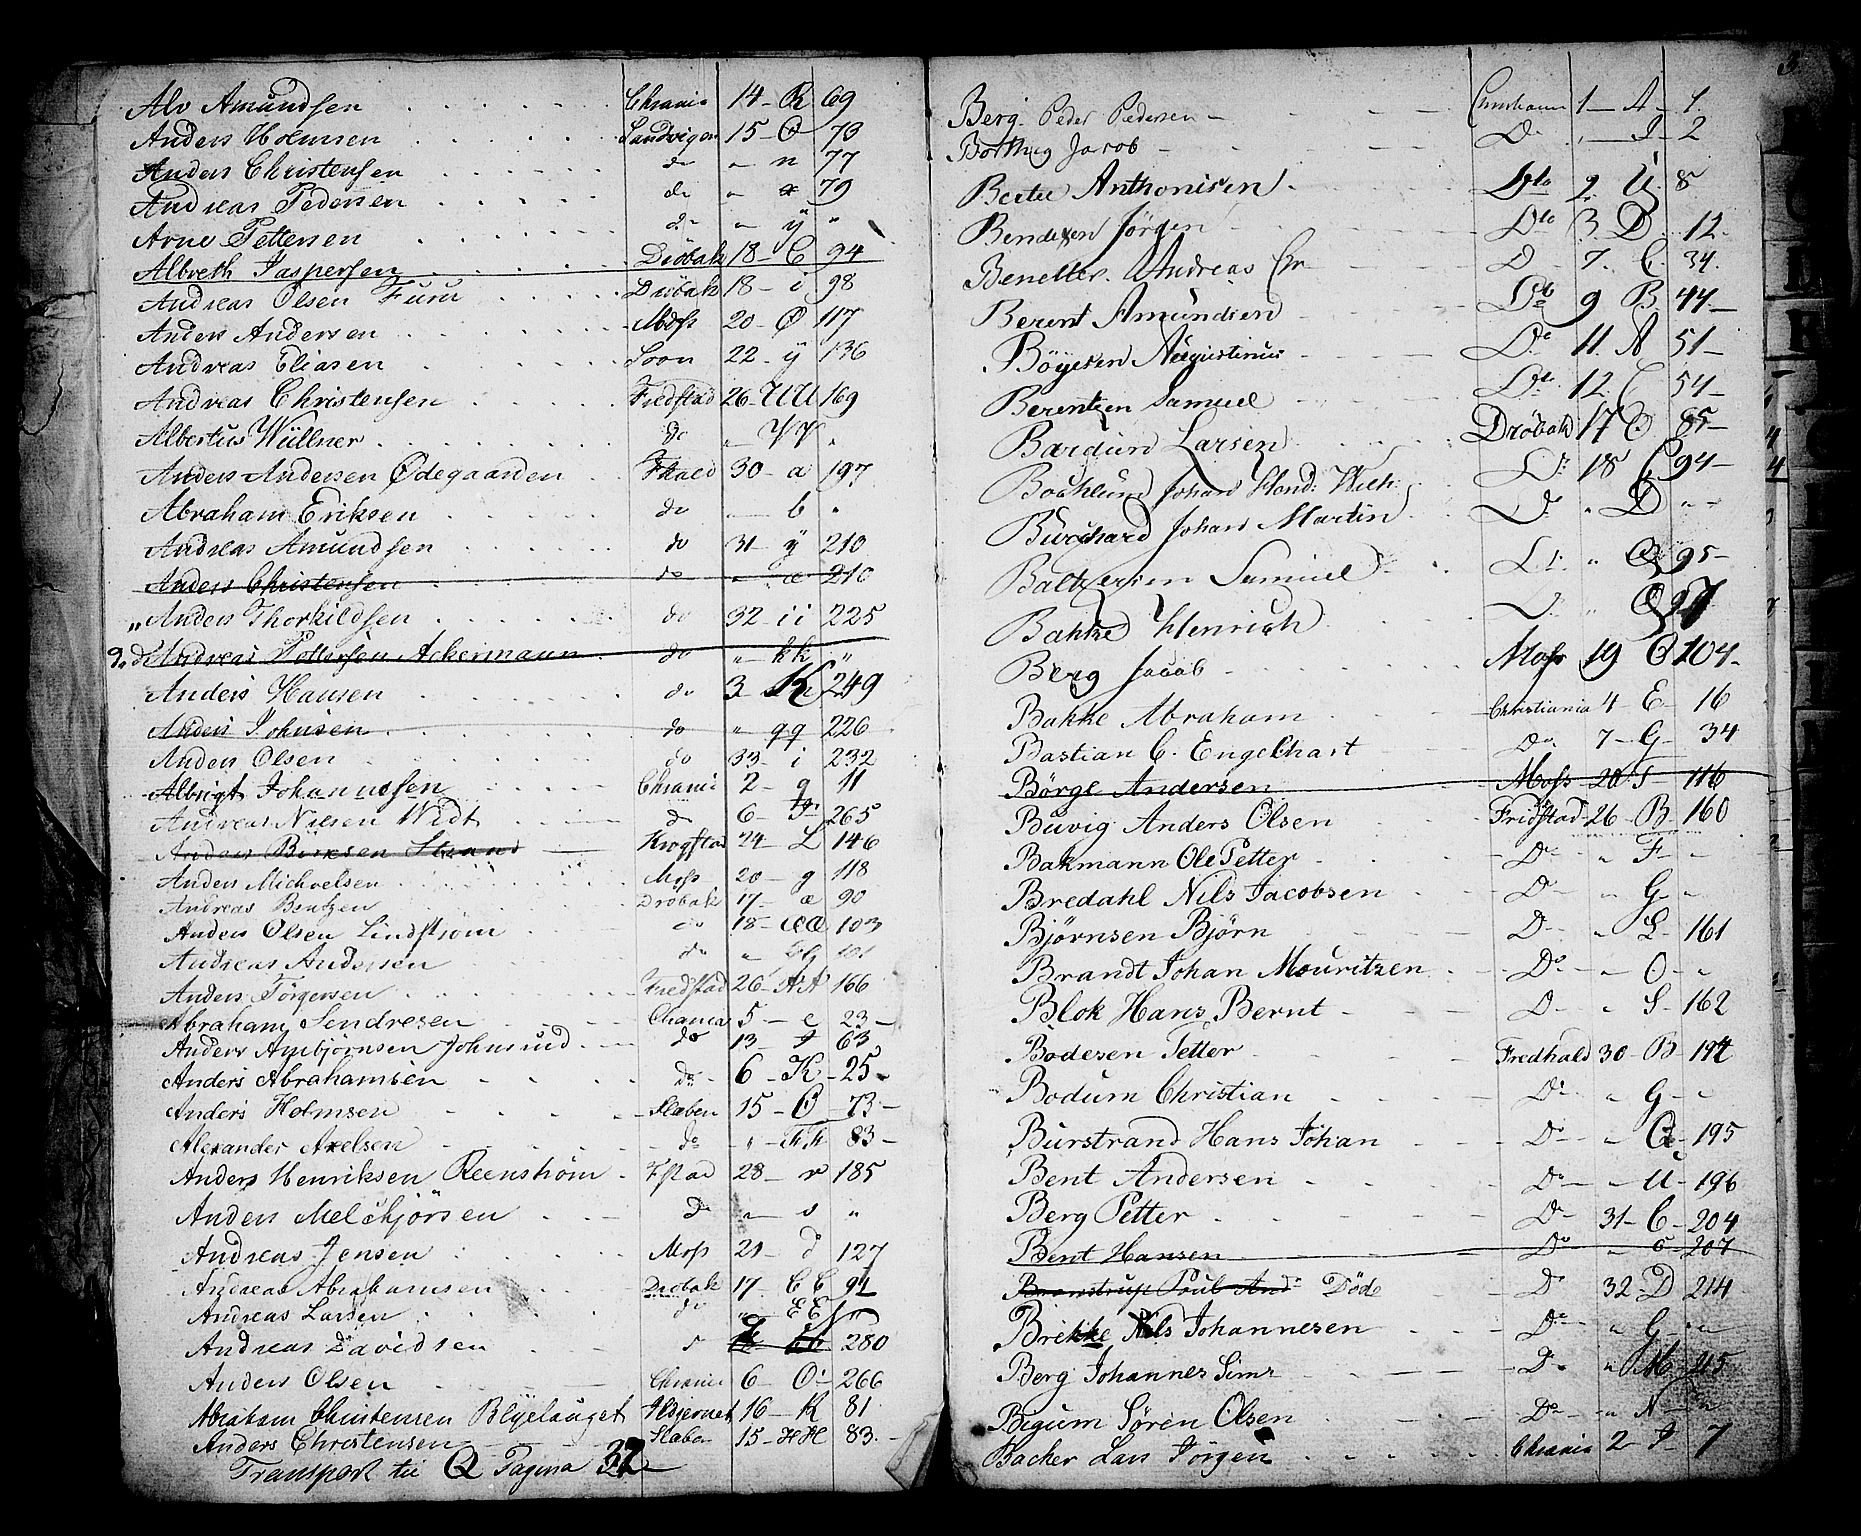 Alv Amundsen Chrania 14 - R 69
Anders Holmsen Sandvigen 15 - O 73
Anders Christensen do " n 77
Andreas Pedersen do " 79
Arne Pettersen do " ÿ "
Albreth Jaspersen Dröbak 18 - C 94
Andreas Olsen Furu Dröbak 18 - i 98
Anders Andersen Moss 20 - Ø 117
Andreas Eliasen Soon 22 - ÿ 136
Andreas Christensen Fredstad 26 - UU 169
Albertus Wüllner do " YY "
Anders Andersen Ødegaarden Fhald 30 - a 197
Abraham Eriksen do - b "
Andreas Amundsen do 31 - ÿ 210
Anders Christensen do " æ 210
" Anders Thorkildsen do 32 - ii 225
Andreas Pettersen Ackermann do " kk "
Anders Hansen do 3 K 249
Anders Johnsen do " qq 226
Anders Olsen do 33 - i 232
Albrigt Johannessen Chrania 2 - g 11
Andreas Nilsen Widt do 6 - 265
Anders Strand Krogstad 24 - L 146
Anders Michaelsen Moss 20 - g 118
Andreas Bentzen Dröbak 17 - æ 90
Anders Olsen Lindstrøm do 18 - ææ 103
Andreas Andersen do "
Anders Törgersen Fredstad 26 - AA 166
Abraham Sendresen Chrania 5 - e 23 -
Anders Ambjørnsen Johnsrud do 13 - 63
Anders Abrahamsen do - 6 - K - 25 -
Anders Holmsen Slaben 15 - O - 73 -
Alexander Axelsen do " - 83 -
Anders Henriksen Reenstrøm Fstad 28 - r 185
Anders Melchjörsen do " v "
Andreas Jensen Moss 21 - d 127
Andreas Abrahamsen Dröbak 17 - CC 91
Andreas Larsen do " EE
Andreas Davidsen 280
Anders Olsen Chrania 6 - O - 266
Abraham Christensen Blylauget 16 - K 81
Anders Christensen Slaben 15 - HH 83 -
Transport til Q Pagina 32
3
Berg Peder Pedersen - Christiania 1 - A - 1.
Borthig Jacob - D - J - 2
Bertel Anthonisen Dto 2 U 8
Bendixen Jörgen Dto 3 D 12
Benetter Andreas Chr D 7. C. 34.
Berent Amundsen Dto 9 B 44 -
Böyesen Augustinus Do 11. A 51 -
Berentzen Samuel Do 12. C 54 -
Bardun Larsen Dröbak 17 O 85 -
Bocklund Johan D: 18 C 94 -
Burchard Johan Martin D: " D "
Baltzersen Samuel D: " 95 -
Bakke Henrich D: " 97
Berg Jacob - Moss 19 O 104 -
Bakke Abraham Christiania 4 - E - 16
Bastian C. Engelhart Do 7 - G - 34
Börge Andersen Moss 20 - T - 116
Buvig Anders Olsen Fridstad 26 - B - 160
Bakmann Ole Petter Do " F - "
Bredahl Nils Jacobsen Do " G - "
Björnsen Björn Do " L - 161
Brandt Johan Mouritzen Do " O - "
Blok Hans Bernt Do " S - 162
Bodesen Petter Fredhald 30 - B - 194
Bodum Christian Do " G - "
Burstrand Hans Johan Do " 195
Bent Andersen Do " U - 196
Berg Petter Do 31 - C - 204
Bent Hansen Do " 207
Poul And: Död Do 32 - D 214
Brikke Nils Johannesen Do " G - "
Berg Johannes Sims Do " M - 215
Begum Sören Olsen Do " N - "
Backer Lars Jörgen Chrania 2 - J - 7